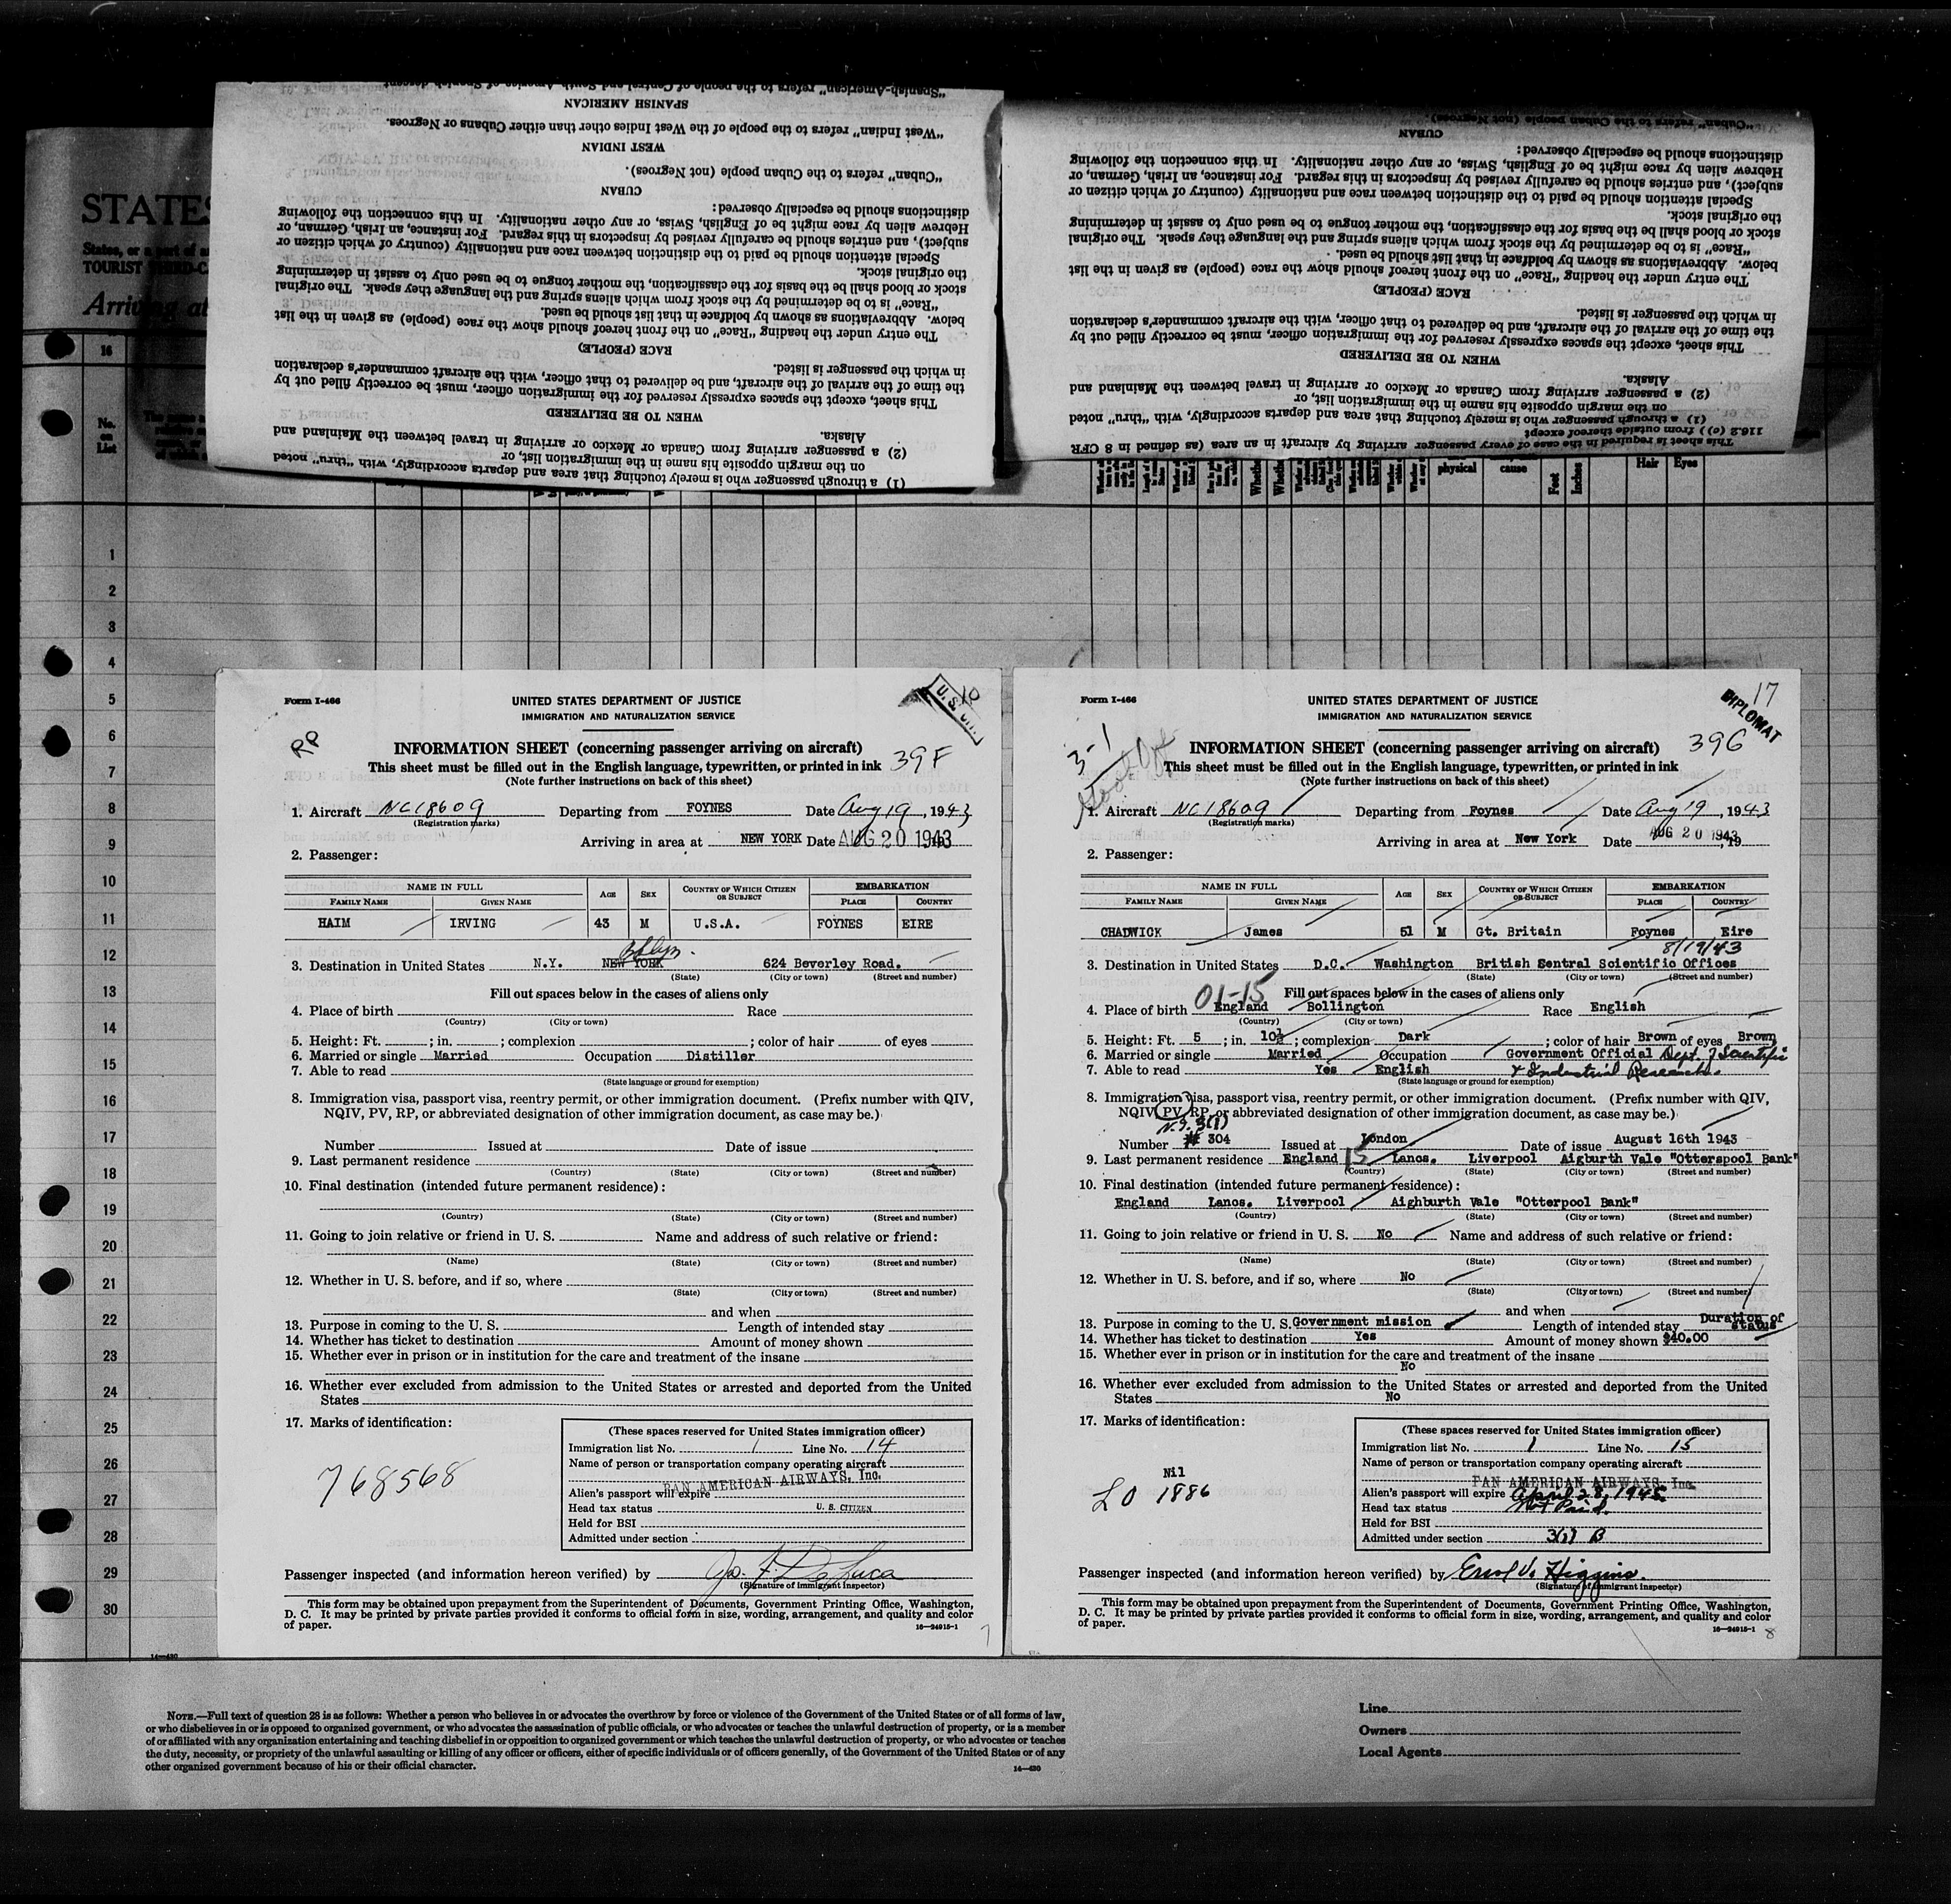 "Spanish-American" refers to the people of Central and South America of Spanish descent.
SPANISH AMERICAN
"West Indian" refers to the people of the West Indies other than either Cubans or Negroes.
WEST INDIAN
"Cuban" refers to the Cuban people (not Negroes).
CUBAN
distinctions should be especially observed:
Hebrew alien by race might be of English, Swiss, or any other nationality. In this connection the following
subject), and entries should be carefully revised by inspectors in this regard. For instance, an Irish, German, or
Special attention should be paid to the distinction between race and nationality (country of which citizen or
the original stock.
stock or blood shall be the basis for the classification, the mother tongue to be used only to assist in determining
"Race" is to be determined by the stock from which aliens spring and the language they speak. The original
below. Abbreviations as shown by boldface in that list should be used.
The entry under the heading "Race" on the front hereof should show the race (people) as given in the list
RACE (PEOPLE)
in which the passenger is listed.
the time of the arrival of the aircraft, and be delivered to that officer, with the aircraft commander's declaration
This sheet, except the spaces expressly reserved for the immigration officer, must be correctly filled out by
WHEN TO BE DELIVERED
Alaska.
(2) a passenger arriving from Canada or Mexico or arriving in travel between the Mainland and
on the margin opposite his name in the immigration list, or
(1) a through passenger who is merely touching that area and departs accordingly, with "thru" noted
"Cuban" refers to the Cuban people (not Negroes).
CUBAN
distinctions should be especially observed:
Hebrew alien by race might be of English, Swiss, or any other nationality. In this connection the following
subject), and entries should be carefully revised by inspectors in this regard. For instance, an Irish, German, or
Special attention should be paid to the distinction between race and nationality (country of which citizen or
the original stock.
stock or blood shall be the basis for the classification, the mother tongue to be used only to assist in determining
"Race" is to be determined by the stock from which aliens spring and the language they speak. The original
below. Abbreviations as shown by boldface in that list should be used.
The entry under the heading "Race" on the front hereof should show the race (people) as given in the list
RACE (PEOPLE)
in which the passenger is listed.
the time of the arrival of the aircraft, and be delivered to that officer, with the aircraft commander's declaration
This sheet, except the spaces expressly reserved for the immigration officer, must be correctly filled out by
WHEN TO BE DELIVERED
Alaska.
(2) a passenger arriving from Canada or Mexico or arriving in travel between the Mainland and
on the margin opposite his name in the immigration list, or
(1) a through passenger who is merely touching that area and departs accordingly, with "thru" noted
116.2 (c)) from outside thereof except
This sheet is required in the case of every passenger arriving by aircraft in an area (as defined in 8 CFR
STATES
States, or a part of a
TOURIST THIRD-C
Arriving at
16
No. on List
physical
cause
Feet
Inches
Hair
Eyes
1
2
3
4
5
6
7
8
9
10
11
12
13
14
15
16
17
18
19
20
21
22
23
24
25
26
27
28
29
30
Form I-466
UNITED STATES DEPARTMENT OF JUSTICE
IMMIGRATION AND NATURALIZATION SERVICE
10
RP
INFORMATION SHEET (concerning passenger arriving on aircraft)
39F
This sheet must be filled out in the English language, typewritten, or printed in ink
(Note further instructions on back of this sheet)
1. Aircraft NC18609 Departing from FOYNES Date Aug 19, 1943
(Registration marks)
Arriving in area at NEW YORK Date AUG 20 1943
2. Passenger:
NAME IN FULL AGE SEX COUNTRY OF WHICH CITIZEN OR SUBJECT EMBARKATION
FAMILY NAME GIVEN NAME PLACE COUNTRY
HAIM IRVING 43 M U.S.A. FOYNES EIRE
Bklyn.
3. Destination in United States N.Y. NEW YORK 624 Beverley Road.
(State) (City or town) (Street and number)
Fill out spaces below in the cases of aliens only
4. Place of birth Race
(Country) (City or town)
5. Height: Ft. ; in. ; complexion ; color of hair of eyes
6. Married or single Married Occupation Distiller
7. Able to read
(State language or ground for exemption)
8. Immigration visa, passport visa, reentry permit, or other immigration document. (Prefix number with QIV,
NQIV, PV, RP, or abbreviated designation of other immigration document, as case may be.)
Number Issued at Date of issue
9. Last permanent residence
(Country) (State) (City or town) (Street and number)
10. Final destination (intended future permanent residence):
(Country) (State) (City or town) (Street and number)
11. Going to join relative or friend in U. S. Name and address of such relative or friend:
(Name) (State) (City or town) (Street and number)
12. Whether in U. S. before, and if so, where
(State) (City or town) (Street and number)
and when
13. Purpose in coming to the U. S. Length of intended stay
14. Whether has ticket to destination Amount of money shown
15. Whether ever in prison or in institution for the care and treatment of the insane
16. Whether ever excluded from admission to the United States or arrested and deported from the United
States
17. Marks of identification:
768568
(These spaces reserved for United States immigration officer)
Immigration list No. 1 Line No. 14
Name of person or transportation company operating aircraft
PAN AMERICAN AIRWAYS, Inc.
Alien's passport will expire
Head tax status U. S. CITIZEN
Held for BSI
Admitted under section
Passenger inspected (and information hereof verified) by Jo. F. De Luca
(Signature of immigrant inspector)
This form may be obtained upon prepayment from the Superintendent of Documents, Government Printing Office, Washington,
D. C. It may be printed by private parties provided it conforms to official form in size, wording, arrangement, and quality and color
of paper.
16—24915-1
7
Form I-466
UNITED STATES DEPARTMENT OF JUSTICE
IMMIGRATION AND NATURALIZATION SERVICE
17
DIPLOMAT
3-1
INFORMATION SHEET (concerning passenger arriving on aircraft)
39G
This sheet must be filled out in the English language, typewritten, or printed in ink
(Note further instructions on back of this sheet)
1. Aircraft NC18609 Departing from Foynes Date Aug 19, 1943
(Registration marks)
Arriving in area at New York Date AUG 20 1943, 19
2. Passenger:
NAME IN FULL AGE SEX COUNTRY OF WHICH CITIZEN OR SUBJECT EMBARKATION
FAMILY NAME GIVEN NAME PLACE COUNTRY
CHADWICK James 51 M Gt. Britain Foynes Eire
8/19/43
3. Destination in United States D.C. Washington British Sentral Scientific Offices
(State) (City or town) (Street and number)
01-15
Fill out spaces below in the cases of aliens only
4. Place of birth England Bollington Race English
(Country) (City or town)
5. Height: Ft. 5 ; in. 10½ ; complexion Dark ; color of hair Brown of eyes Brown
6. Married or single Married Occupation Government Official Dept. of Scientific
7. Able to read Yes English & Industrial Research.
(State language or ground for exemption)
8. Immigration visa, passport visa, reentry permit, or other immigration document. (Prefix number with QIV,
NQIV, PV, RP, or abbreviated designation of other immigration document, as case may be.)
N.I. 3(1)
Number # 304 Issued at London Date of issue August 16th 1943
9. Last permanent residence England 15 Lancs. Liverpool Aigburth Vale "Otterspool Bank"
(Country) (State) (City or town) (Street and number)
10. Final destination (intended future permanent residence):
England Lancs. Liverpool Aighburth Vale "Otterpool Bank"
(Country) (State) (City or town) (Street and number)
11. Going to join relative or friend in U. S. No Name and address of such relative or friend:
(Name) (State) (City or town) (Street and number)
12. Whether in U. S. before, and if so, where No
(State) (City or town) (Street and number)
and when
13. Purpose in coming to the U. S. Government mission Length of intended stay Duration of status
14. Whether has ticket to destination Yes Amount of money shown $40.00
15. Whether ever in prison or in institution for the care and treatment of the insane
No
16. Whether ever excluded from admission to the United States or arrested and deported from the United
States No
17. Marks of identification:
Nil
LO 1886
(These spaces reserved for United States immigration officer)
Immigration list No. 1 Line No. 15
Name of person or transportation company operating aircraft
PAN AMERICAN AIRWAYS, Inc.
Alien's passport will expire April 28, 1945
Head tax status Not Paid.
Held for BSI
Admitted under section 3(1) B
Passenger inspected (and information hereof verified) by Errol V. Higgins.
(Signature of immigrant inspector)
This form may be obtained upon prepayment from the Superintendent of Documents, Government Printing Office, Washington,
D. C. It may be printed by private parties provided it conforms to official form in size, wording, arrangement, and quality and color
of paper.
16—24915-1
8
14—430
NOTE.—Full text of question 28 is as follows: Whether a person who believes in or advocates the overthrow by force or violence of the Government of the United States or of all forms of law,
or who disbelieves in or is opposed to organized government, or who advocates the assassination of public officials, or who advocates or teaches the unlawful destruction of property, or is a member
of or affiliated with any organization entertaining and teaching disbelief in or opposition to organized government or which teaches the unlawful destruction of property, or who advocates or teaches
the duty, necessity, or propriety of the unlawful assaulting or killing of any officer or officers, either of specific individuals or of officers generally, of the Government of the United States or of any
other organized government because of his or their official character.
14—430
Line
Owners
Local Agents